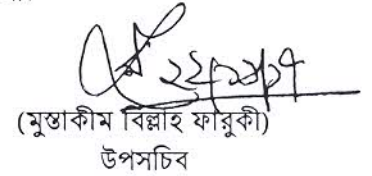 (মুস্তাকীম বিল্লাহ ফারুকী)
উপসচিব